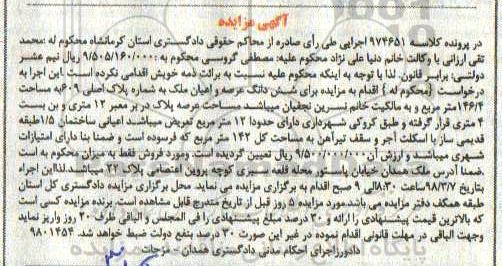 آگهی مزایده
در پرونده کلاسه ۹۷۴۶۵۱ اجرایی طی رأی صادره از محاکم حقوقی دادگستری استان کرمانشاه محکوم له :محمد
تقی ارزانی با وکالت خانم دنیا علی نژاد محکوم علیه: مصطفی گروسی محکوم به :۹/۵۰۵/۱۶۰/۰۰۰ ریال نیم عشر
دولتی: برابر قانون. لذا با توجه به اینکه محکوم علیه نسبت به برائت ذمه خویش اقدامی نکرده است .این اجرا به
درخواست {محکوم له } اقدام به مزایده برای شش دانگ عرصه و اعیان ملک به شماره پلاک اصلی ۶۰۹به مساحت
۱۴۶/۴ متر مربع و به مالکیت خانم نسرین نجفیان میباشد مساحت عرصه پلاک در بر معبر ۱۲ متری و بن بست
۴ متری قرار گرفته و طبق کروکی شهرداری دارای حدودا ۱۲ متر مربع تعریض میباشد اعیانی ساختمان ۱/۵طبقه
قدیمی ساز با اسکلت آجر و سقف تیرآهن به مساحت کل ۱۴۲ متر مربع که فرسوده است و ضمنا بنا دارای امتیازات
شهری میباشد و ارزش آن ریال تعیین گردیده است. ومورد فروش فقط به میزان محکوم به است
.ضمنا آدرس ملک همدان خیابان پاستور محله قلعه سبزی کوچه پروین اعتصامی پلاک ۲۲ میباشد.لذااین اجراء
بتاریخ ۹۸/۳/۷وساعت ۸:۳۰الی ۹ صبح اقدام به برگزاری مزایده می نماید. محل برگزاری مزایده دادگستری کل استان
طبقه همکف دفتر مزایده می باشد.مورد مزایده ۵ روز قبل از تاریخ مندرج قابل مشاهده است. برنده مزایده کسی است
که بالاترین قیمت پیشنهادی را ارائه و ۳۰ درصد مبلغ پیشنهادی را فی المجلس و الباقی ظرف ۲۰ روز واریز نماید
وجهت الباقی در مهلت قانونی اقدام نموده در غیر این صورت ۳۰ درصد بنفع دولت ضبط خواهد شد. ۹۸۰۱۴۵۴
دادورزاجرای احکام مدنی دادگستری همدان